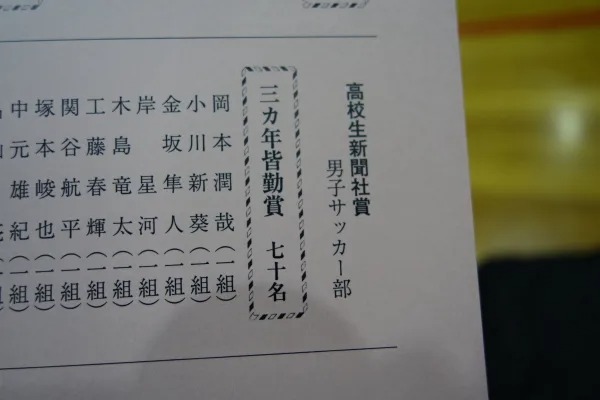 高校生新聞社賞
男子サッカー部
三カ年皆勤賞 七十名
岡本潤哉(一組)
小川新葵(一組)
金坂隼人(一組)
岸 星河(一組)
木島竜太(一組)
工藤春輝(一組)
関谷航平(一組)
塚本峻也(一組)
中元雄紀(一組)